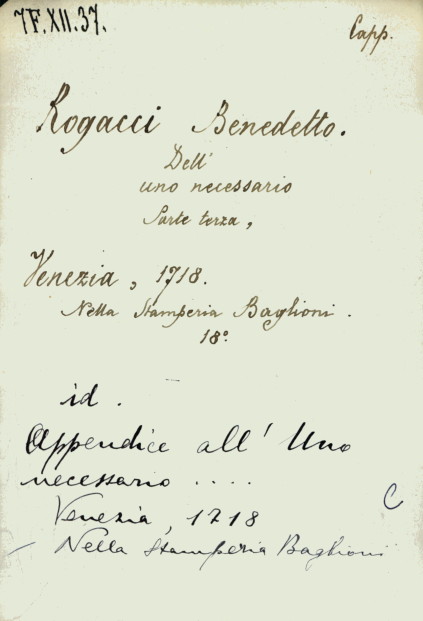 7F.XII.37.
Capp.
Rogacci Benedetto.
Dell'
uno necessario
Parte terza,
Venezia, 1718.
Nella Stamperia Baglioni.
18°
id.
Appendice all' Uno
necessario ....
C
Venezia, 1718
Nella Stamperia Baglioni